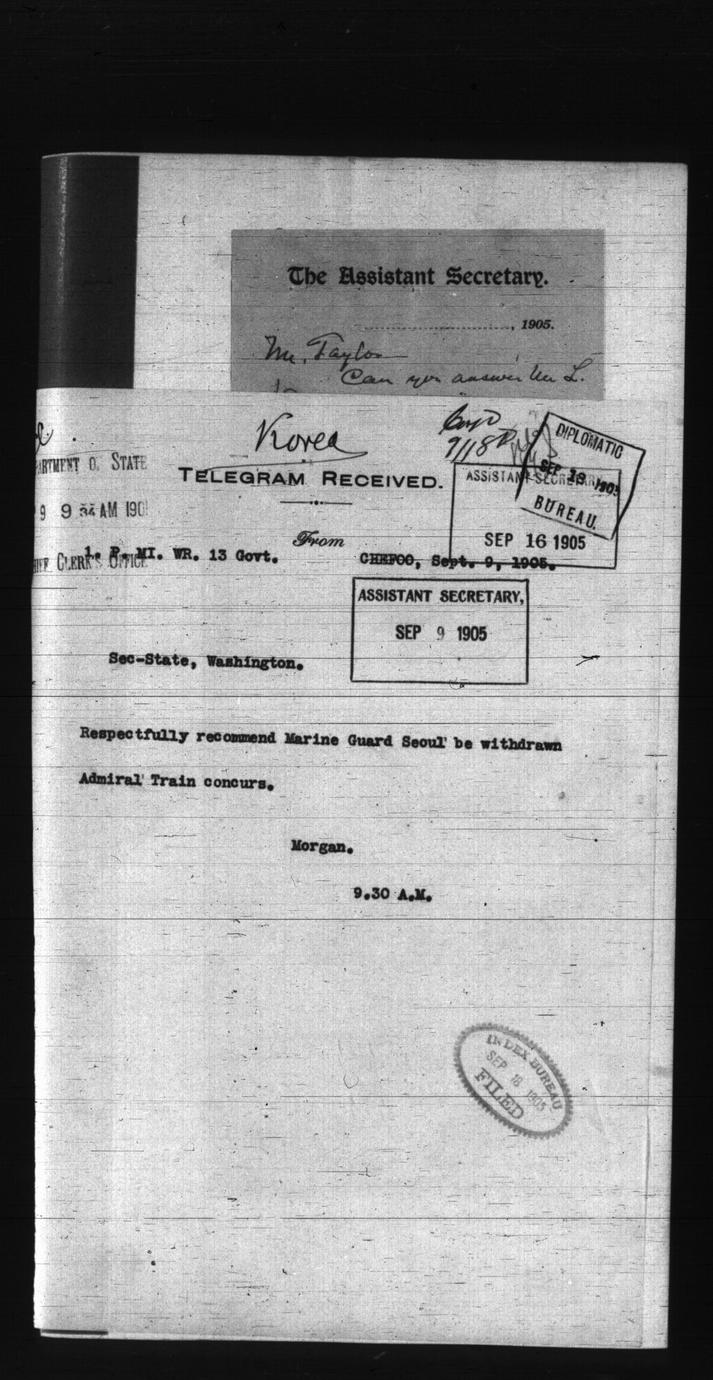 The Assistant Secretary.
, 1905.
Mr. Taylor
Can you answer Mr L.
Korea
9/18
DIPLOMATIC
SEP 19 1905
BUREAU.
ARTMENT O. STATE
TELEGRAM RECEIVED.
ASSISTANT SECRETARY
9 9 34 AM 190
SEP 16 1905
From
1. F. MI. WR. 13 Govt.
CHEFOO, Sept. 9, 1905.
CLERK'S OFFICE
ASSISTANT SECRETARY,
SEP 9 1905
Sec-State, Washington.
Respectfully recommend Marine Guard Seoul be withdrawn
Admiral Train concurs.
Morgan.
9.30 A.M.
INDEX BUREAU
SEP 18 1905
FILED